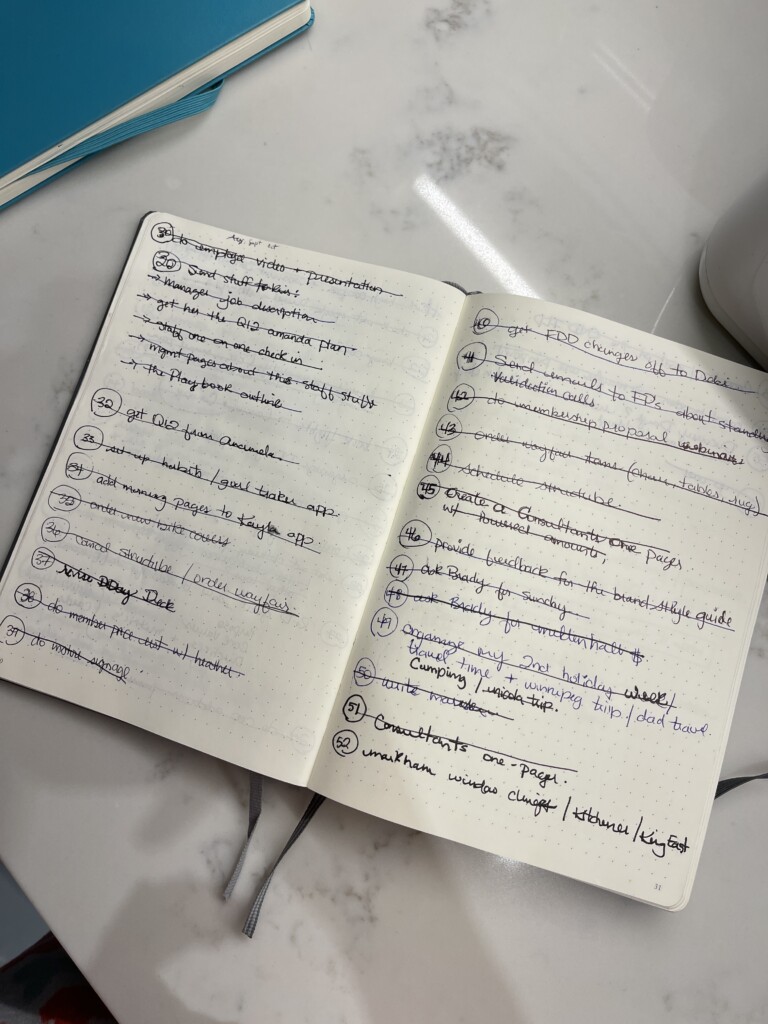 30 to employee video + presentation
30 Send stuff to
→ Manager job description
→ get her the Q12 amanda plan
→ staff one on one check in
→ mgmt pages about this staff stuff
→ the Playbook outline
32 get Q12 from
33 set up habits / goal tracker app.
34 add morning pages to app.
35 order new bike covers
36 cancel structube / order wayfair.
37 Deck
38 do member price list w/ heather.
39 do signage
40 get FDD changes off to
41 Send emails to FPs about standing
validation calls
42 do membership proposal webinar
43 order wayfair items (chairs, tables, rug)
44 schedule structube.
45 Create a Consultants one pager
w/ amounts,
46 provide feedback for the brand style guide
47 ask Brady for Sunday
48 ask Brady for $.
49 Organize my 2nd holiday week/
travel time + winnipeg trip / dad travel
Camping / trip.
50 write
51 Consultants one-pager.
52 markham window clings / Kitchener / King East
31